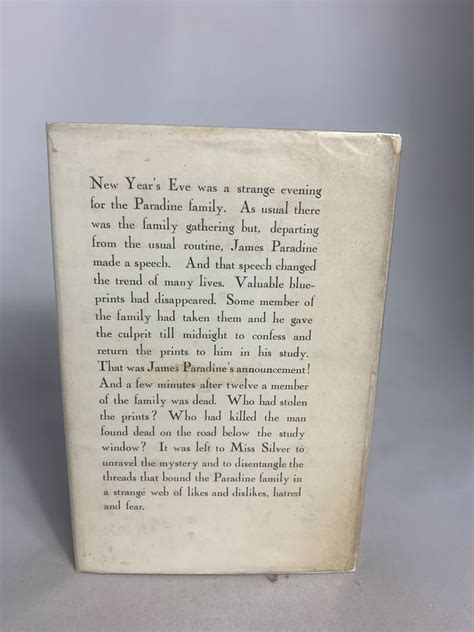 New Year's Eve was a strange evening
for the Paradine family. As usual there
was the family gathering but, departing
from the usual routine, James Paradine
made a speech. And that speech changed
the trend of many lives. Valuable blue-
prints had disappeared. Some member of
the family had taken them and he gave
the culprit till midnight to confess and
return the prints to him in his study.
That was James Paradine's announcement!
And a few minutes after twelve a member
of the family was dead. Who had stolen
the prints? Who had killed the man
found dead on the road below the study
window? It was left to Miss Silver to
unravel the mystery and to disentangle the
threads that bound the Paradine family in
a strange web of likes and dislikes, hatred
and fear.